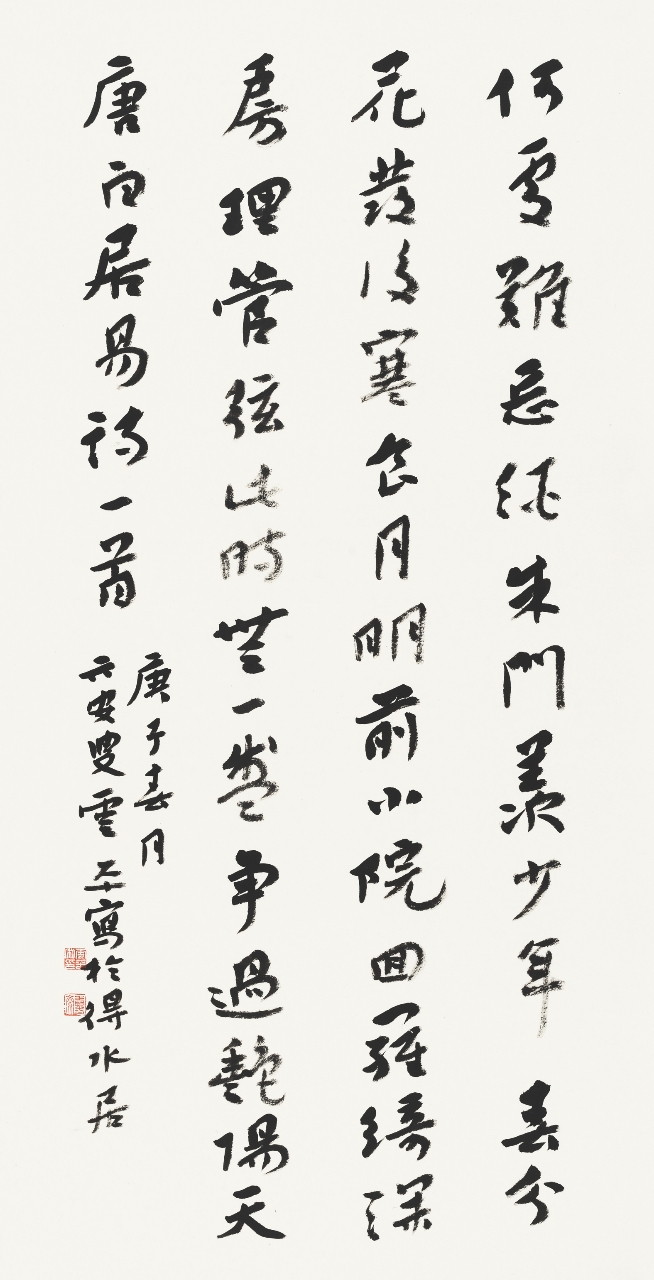 何處難忘酒朱門羨少年春分
花發後寒食月明前小院回羅綺深
房理管弦此時無一盞爭過艷陽天
唐白居易詩一首
庚子春月
六安叟雲平寫於得水居